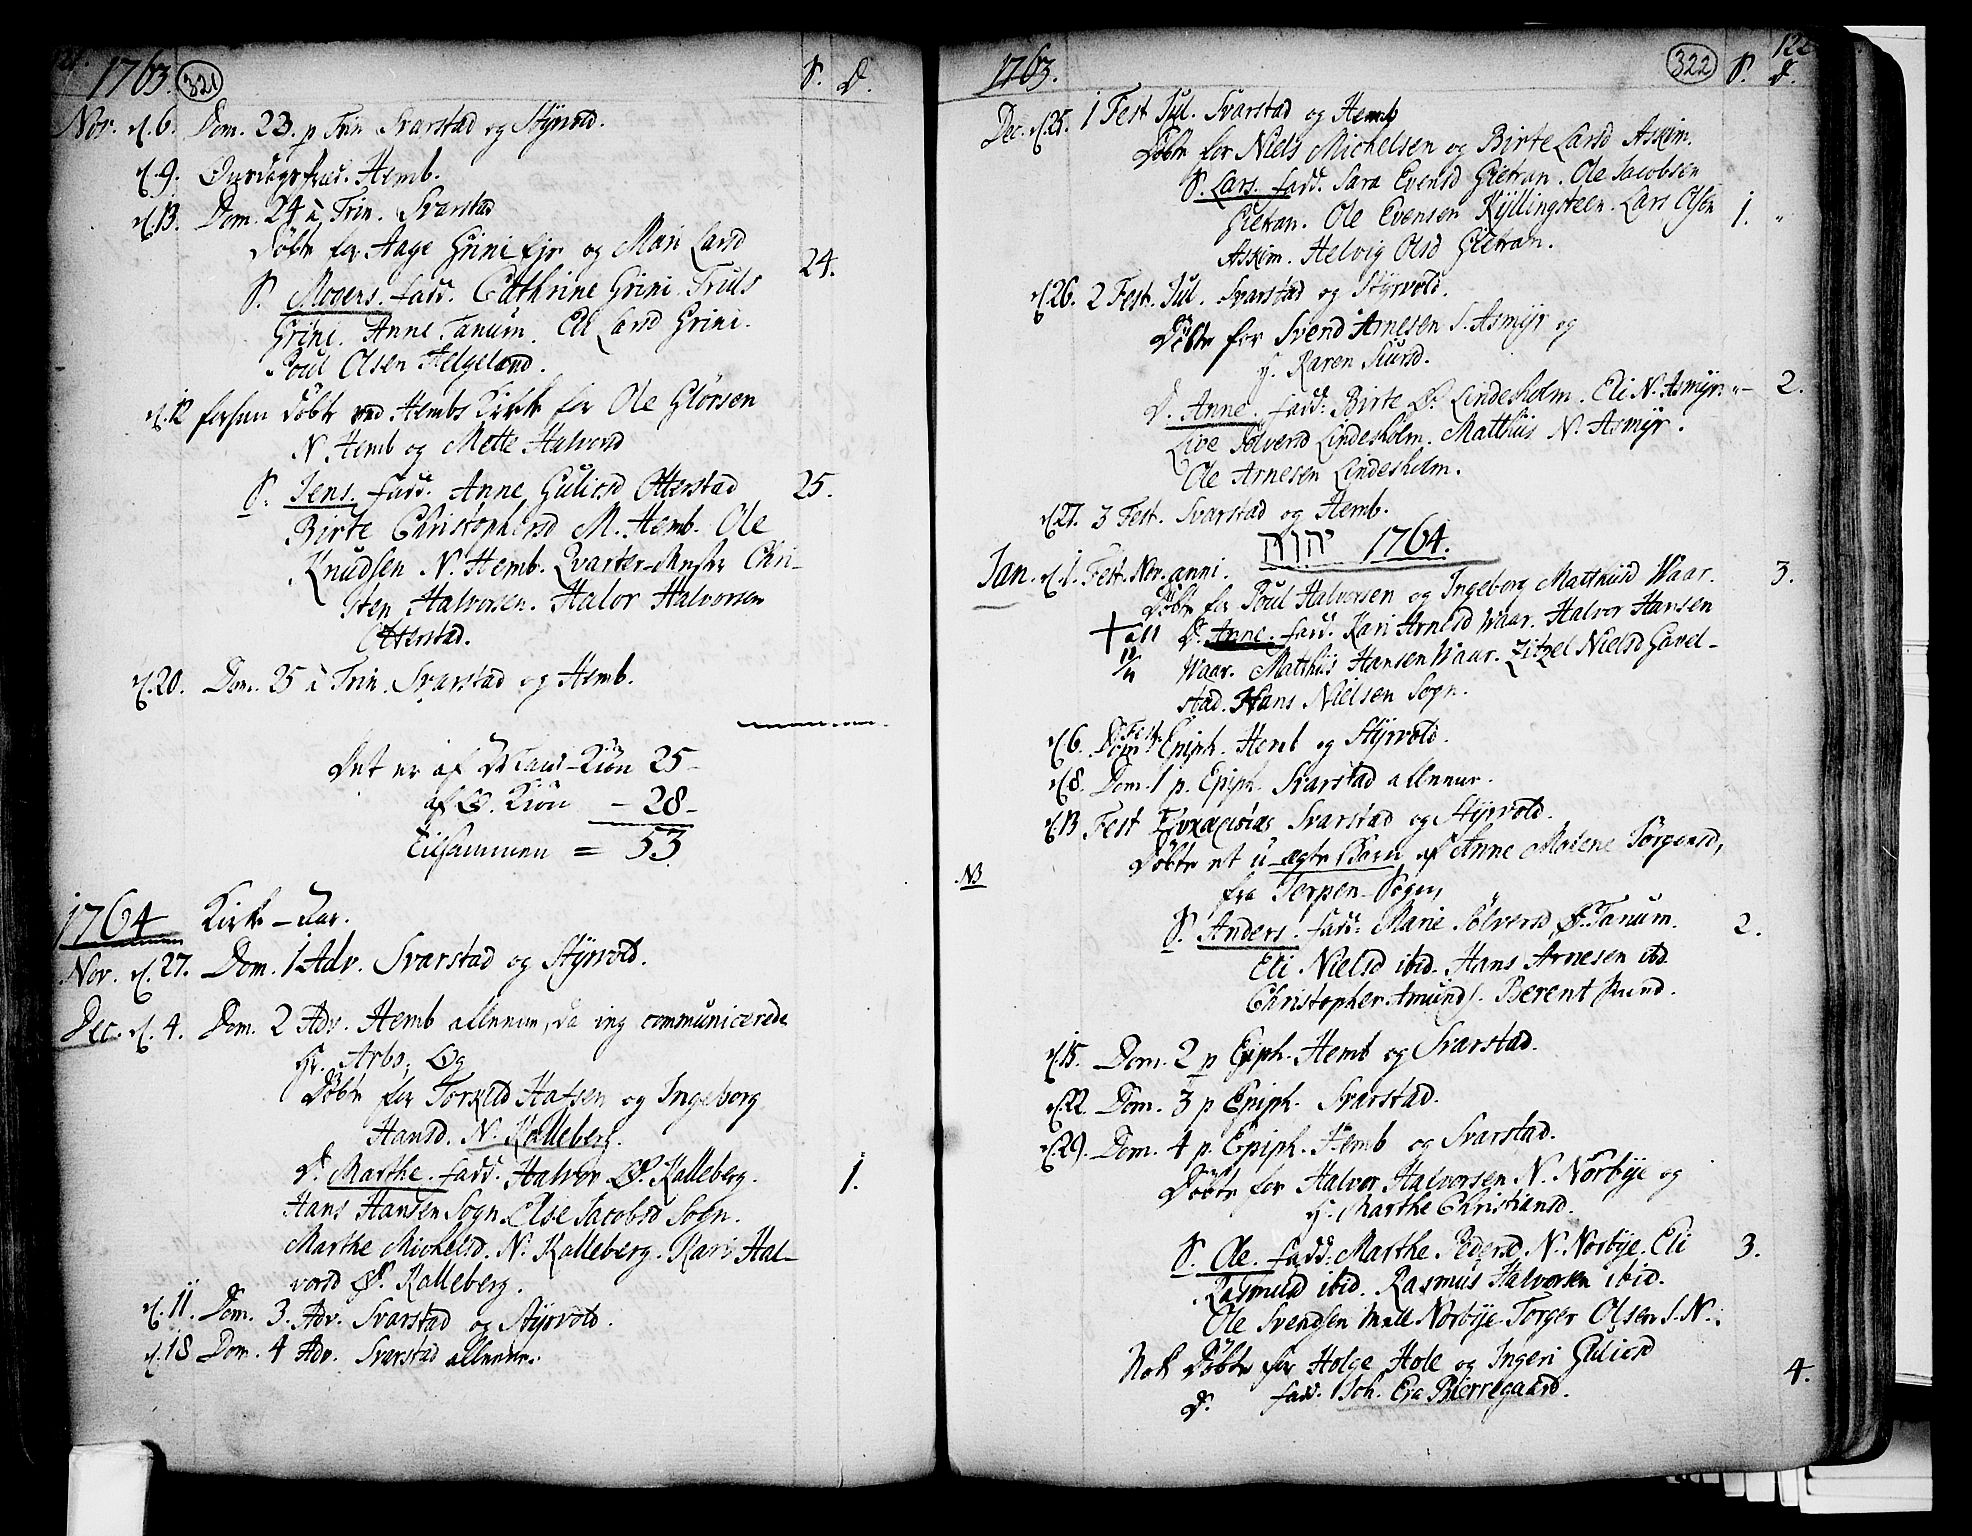 121.
1763. 321 S. D.
Nov. d. 6. Dom. 23. p Trin Svarstad og Styrvold.
d. 9. Onsdags Præd. Hemb.
d. 13. Dom. 24 à Trin. Svarstad
Döbt for Aage Grini Eje og Mari Larsd
S. Mogens. fadd. Cathrine Grini. Truls 24.
Grini. Anne Tanum. Eli Larsd Grini.
Poul Olsen Helgeland.
d. 12 forhen döbt ved Hembs Kirke for Ole Glörsen
N. Hemb og Mette Halvorsd
S. Jens. fadd. Anne Guliksd Otterstad 25.
Birte Christophersd M. Hemb. Ole
Knudsen N. Hemb. Qvarter-Mester Chri-
sten Halvorsen. Halvor Halvorsen
Otterstad.
d. 20. Dom. 25 à Trin. Svarstad og Hemb.
Det er af Mand-Kiön 25-
af Q. Kiön - 28-
Tilsammen = 53
1764 Kirke-Aar.
Nov. d. 27. Dom. 1 Adv. Svarstad og Styrvold.
Dec. d. 4. Dom. 2 Adv. Hemb allene, da ieg communicerede
Hr. Arbo, Og
Döbt for Torkild Hansen og Ingeborg
Hansd. N. Kalleberg.
D. Marthe. fadd. Halvor Ø. Kalleberg. 1.
Hans Hansen Sogn. Else Jacobsd Sogn.
Marthe Michelsd. N. Kalleberg. Kari Hal-
vorsd Ø. Kalleberg.
d. 11. Dom. 3. Adv. Svarstad og Styrvold.
d. 18 Dom. 4 Adv. Svarstad allene.
122
1763. 322 S. D.
Dec. d. 25. 1 Fest Jul. Svarstad og Hemb
Döbt for Niels Michelsen og Birte Larsd Askim.
S. Lars. fadd. Sara Evensd Gietran. Ole Jacobsen
Gietran. Ole Evensen Kyllingsteen. Lars Olsen 1. "
Askim. Helvig Olsd Gietran.
d. 26. 2 Fest. Jul. Svarstad og Styrvold.
Döbt for Svend Arnesen S. Asmyr og
H. Karen
D. Anne. fadd: Birte Ø. Lindesholm. Eli N. Asmyr. "- 2.
Live Sölversd Lindesholm. Matthis N. Asmyr.
Ole Arnesen Lindesholm.
d. 27. 3 Fest. Svarstad og Hemb.
יהוה 1764.
Jan. d. 1. Fest. Nov. anni.
Döbt for Poul Halvorsen og Ingeborg Matthisd Waar. 3.
D. Anne. fadd. Kari Arnesd Waar. Halvor Hansen
Waar. Matthis Hansen Waar. Zitzel Nielsd Gavel-
stad. Hans Nielsen Sogn.
d. 6. Fest. Epiph. Hemb og Styrvold.
d. 8. Dom. 1 p. Epiph. Svarstad allene.
d. 13 Fest Svarstad og Styrvold.
Döbt et u-ægte Barn af Anne Malene Jörgensd,
NB fra Sogn
S. Anders. fadd: Marie Sölversd Ø. Tanum. 2.
Eli Nielsd ibid. Hans Arnesen ibd
Christopher Amunds. Berent Rund.
d. 15. Dom. 2 p Epiph. Hemb og Svarstad.
d. 22. Dom. 3 p Epiph. Svarstad.
d. 29. Dom. 4 p. Epiph. Hemb og Svarstad.
Döbt for Halvor Halvorsen N. Norbye og
H. Marthe Christiansd.
S. Ole. fadd: Marthe Pedersd. N. Norbye. Eli 3.
Rasmusd ibid. Rasmus Halvorsen ibid.
Ole Svendsen Norbye. Torger Olsen S. N.
Nok Döbt for Holge Hole og Ingeri Guliksd
D. fadd. Joh. Eva Bierregaard. 4.